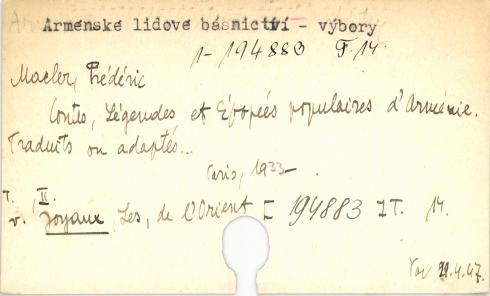 Arménské lidové básnictví - výbory
1-194883 F.14
Macler, Frédéric
Contes, Légendes et Épopées populaires d'Arménie.
Traduits ou adaptés...
Paris, 1933-
T. II.
v. Joyaux, Les, de l'Orient I 194883 IT. 14.
22.4.47.